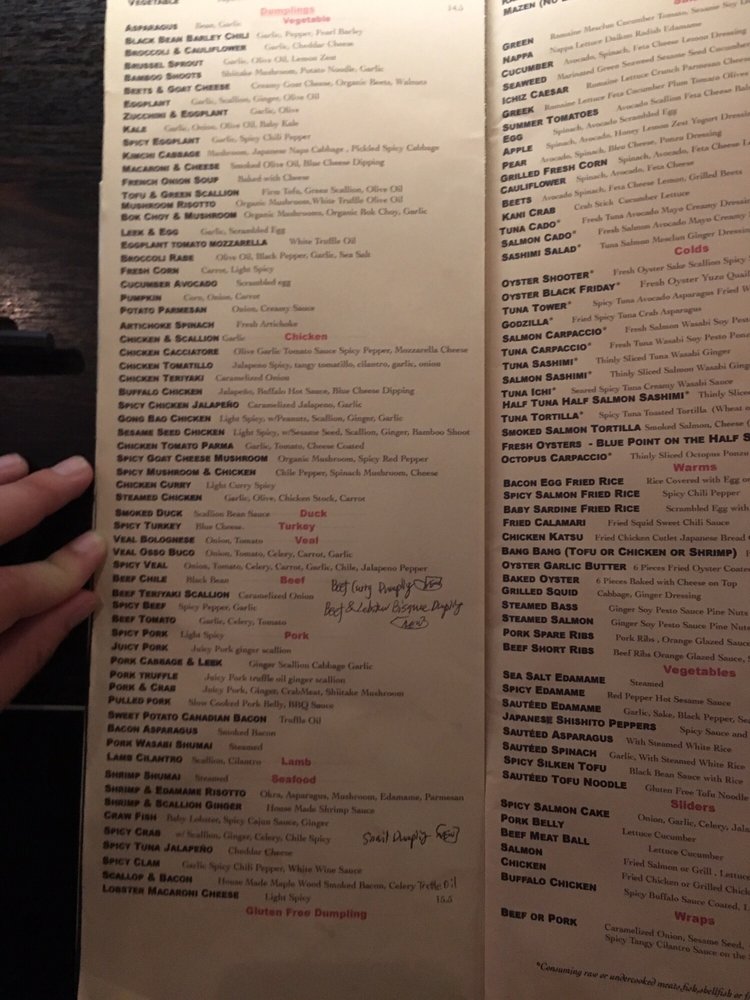 VEGETABLE
14.5
Dumplings
Vegetable
ASPARAGUS Bean, Garlic
BLACK BEAN BARLEY CHILI Garlic, Pepper, Pearl Barley
BROCCOLI & CAULIFLOWER Garlic, Cheddar Cheese
BRUSSEL SPROUT Garlic, Olive Oil, Lemon Zest
BAMBOO SHOOTS Shiitake Mushroom, Potato Noodle, Garlic
BEETS & GOAT CHEESE Creamy Goat Cheese, Organic Beets, Walnuts
EGGPLANT Garlic, Scallion, Ginger, Olive Oil
ZUCCHINI & EGGPLANT Garlic, Olive
KALE Garlic, Onion, Olive Oil, Baby Kale
SPICY EGGPLANT Garlic, Spicy Chili Pepper
KIMCHI CABBAGE Mushroom, Japanese Napa Cabbage, Pickled Spicy Cabbage
MACARONI & CHEESE Smoked Olive Oil, Blue Cheese Dipping
FRENCH ONION SOUP Baked with Cheese
TOFU & GREEN SCALLION Firm Tofu, Green Scallion, Olive Oil
MUSHROOM RISOTTO Organic Mushroom, White Truffle Olive Oil
BOK CHOY & MUSHROOM Organic Mushrooms, Organic Bok Choy, Garlic
LEEK & EGG Garlic, Scrambled Egg
EGGPLANT TOMATO MOZZARELLA White Truffle Oil
BROCCOLI RABE Olive Oil, Black Pepper, Garlic, Sea Salt
FRESH CORN Carrot, Light Spicy
CUCUMBER AVOCADO Scrambled egg
PUMPKIN Corn, Onion, Carrot
POTATO PARMESAN Onion, Creamy Sauce
ARTICHOKE SPINACH Fresh Artichoke
Chicken
CHICKEN & SCALLION Garlic
CHICKEN CACCIATORE Olive Garlic Tomato Sauce Spicy Pepper, Mozzarella Cheese
CHICKEN TOMATILLO Jalapeno Spicy, tangy tomatillo, cilantro, garlic, onion
CHICKEN TERIYAKI Caramelized Onion
BUFFALO CHICKEN Jalapeño, Buffalo Hot Sauce, Blue Cheese Dipping
SPICY CHICKEN JALAPEÑO Caramelized Jalapeno, Garlic
GONG BAO CHICKEN Light Spicy, w/Peanuts, Scallion, Ginger, Garlic
SESAME SEED CHICKEN Light Spicy, w/Sesame Seed, Scallion, Ginger, Bamboo Shoot
CHICKEN TOMATO PARMA Garlic, Tomato, Cheese Coated
SPICY GOAT CHEESE MUSHROOM Organic Mushroom, Spicy Red Pepper
SPICY MUSHROOM & CHICKEN Chile Pepper, Spinach Mushroom, Cheese
CHICKEN CURRY Light Curry Spicy
STEAMED CHICKEN Garlic, Olive, Chicken Stock, Carrot
Duck
SMOKED DUCK Scallion Bean Sauce
Turkey
SPICY TURKEY Blue Cheese
Veal
VEAL BOLOGNESE Onion, Tomato
VEAL OSSO BUCO Onion, Tomato, Celery, Carrot, Garlic
SPICY VEAL Onion, Tomato, Celery, Carrot, Garlic, Chile, Jalapeno Pepper
Beef
BEEF CHILE Black Bean
Beef Curry Dumpling
BEEF TERIYAKI SCALLION Caramelized Onion
Beef & Lobster Bisque Dumpling
NEW
SPICY BEEF Spicy Pepper, Garlic
BEEF TOMATO Garlic, Celery, Tomato
Pork
SPICY PORK Light Spicy
JUICY PORK Juicy Pork ginger scallion
PORK CABBAGE & LEEK Ginger Scallion Cabbage Garlic
PORK TRUFFLE Juicy Pork truffle oil ginger scallion
PORK & CRAB Juicy Pork, Ginger, CrabMeat, Shiitake Mushroom
PULLED PORK Slow Cooked Pork Belly, BBQ Sauce
SWEET POTATO CANADIAN BACON Truffle Oil
BACON ASPARAGUS Smoked Bacon
PORK WASABI SHUMAI Steamed
Lamb
LAMB CILANTRO Scallion, Cilantro
Seafood
SHRIMP SHUMAI Steamed
SHRIMP & EDAMAME RISOTTO Okra, Asparagus, Mushroom, Edamame, Parmesan
SHRIMP & SCALLION GINGER House Made Shrimp Sauce
CRAW FISH Baby Lobster, Spicy Cajun Sauce, Ginger
SPICY CRAB w/ Scallion, Ginger, Celery, Chile Spicy
Snail Dumpling NEW
SPICY TUNA JALAPEÑO Cheddar Cheese
SPICY CLAM Garlic Spicy Chili Pepper, White Wine Sauce
SCALLOP & BACON House Made Maple Wood Smoked Bacon, Celery Truffle Oil
LOBSTER MACARONI CHEESE Light Spicy 15.5
Gluten Free Dumpling
MAZEN
GREEN Romaine Mesclun Cucumber Tomato, Sesame Soy
NAPPA Nappa Lettuce Daikon Radish Edamame
CUCUMBER Avocado, Spinach, Feta Cheese Lemon Dressing
SEAWEED Marinated Green Seaweed Sesame Seed Cucumber
ICHIZ CAESAR Romaine Lettuce Crunch Parmesan Cheese
GREEK Romaine Lettuce Feta Cucumber Plum Tomato Olives
SUMMER TOMATOES Avocado Scallion Feta Cheese
EGG Spinach, Avocado Scrambled Egg
APPLE Spinach, Avocado, Honey Lemon Zest Yogurt
PEAR Avocado, Spinach, Bleu Cheese, Ponzu Dressing
GRILLED FRESH CORN Spinach, Avocado, Feta Cheese
CAULIFLOWER Spinach, Avocado, Feta Cheese
BEETS Avocado Spinach, Feta Cheese Lemon, Grilled Beets
KANI CRAB Crab Stick Cucumber Lettuce
TUNA CADO* Fresh Tuna Avocado Mayo Creamy
SALMON CADO* Fresh Salmon Avocado Mayo Creamy
SASHIMI SALAD* Tuna Salmon Mesclun Ginger
Colds
OYSTER SHOOTER* Fresh Oyster Sake Scallion Spicy
OYSTER BLACK FRIDAY* Fresh Oyster Yuzu Quail
TUNA TOWER* Spicy Tuna Avocado Asparagus Fried
GODZILLA* Fried Spicy Tuna Crab Asparagus
SALMON CARPACCIO* Fresh Salmon Wasabi Soy Pesto
TUNA CARPACCIO* Fresh Tuna Wasabi Soy Pesto
TUNA SASHIMI* Thinly Sliced Tuna Wasabi Ginger
SALMON SASHIMI* Thinly Sliced Salmon Wasabi
TUNA ICHI* Seared Spicy Tuna Creamy Wasabi Sauce
HALF TUNA HALF SALMON SASHIMI* Thinly Sliced
TUNA TORTILLA* Spicy Tuna Toasted Tortilla (Wheat
SMOKED SALMON TORTILLA Smoked Salmon, Cheese
FRESH OYSTERS - BLUE POINT ON THE HALF
OCTOPUS CARPACCIO* Thinly Sliced Octopus Ponzu
Warms
BACON EGG FRIED RICE Rice Covered with Egg
SPICY SALMON FRIED RICE Spicy Chili Pepper
BABY SARDINE FRIED RICE Scrambled Egg with
FRIED CALAMARI Fried Squid Sweet Chili Sauce
CHICKEN KATSU Fried Chicken Cutlet Japanese Bread
BANG BANG (TOFU OR CHICKEN OR SHRIMP)
OYSTER GARLIC BUTTER 6 Pieces Fried Oyster
BAKED OYSTER 6 Pieces Baked with Cheese on Top
GRILLED SQUID Cabbage, Ginger Dressing
STEAMED BASS Ginger Soy Pesto Sauce Pine Nuts
STEAMED SALMON Ginger Soy Pesto Sauce Pine
PORK SPARE RIBS Pork Ribs, Orange Glazed
BEEF SHORT RIBS Beef Ribs Orange Glazed
Vegetables
SEA SALT EDAMAME Steamed
SPICY EDAMAME Red Pepper Hot Sesame Sauce
SAUTÉED EDAMAME Garlic, Sake, Black Pepper,
JAPANESE SHISHITO PEPPERS Spicy Sauce and
SAUTÉED ASPARAGUS With Steamed White Rice
SAUTÉED SPINACH Garlic, With Steamed White Rice
SPICY SILKEN TOFU Black Bean Sauce with Rice
SAUTÉED TOFU NOODLE Gluten Free Tofu Noodle
Sliders
SPICY SALMON CAKE Onion, Garlic, Celery,
PORK BELLY Lettuce Cucumber
BEEF MEAT BALL Lettuce Cucumber
SALMON Fried Salmon or Grill,
CHICKEN Fried Chicken or Grilled
BUFFALO CHICKEN Spicy Buffalo Sauce Coated,
Wraps
BEEF OR PORK Caramelized Onion, Sesame Seed,
Spicy Tangy Cilantro Sauce on the
*Consuming raw or undercooked meats,fish,shellfish or